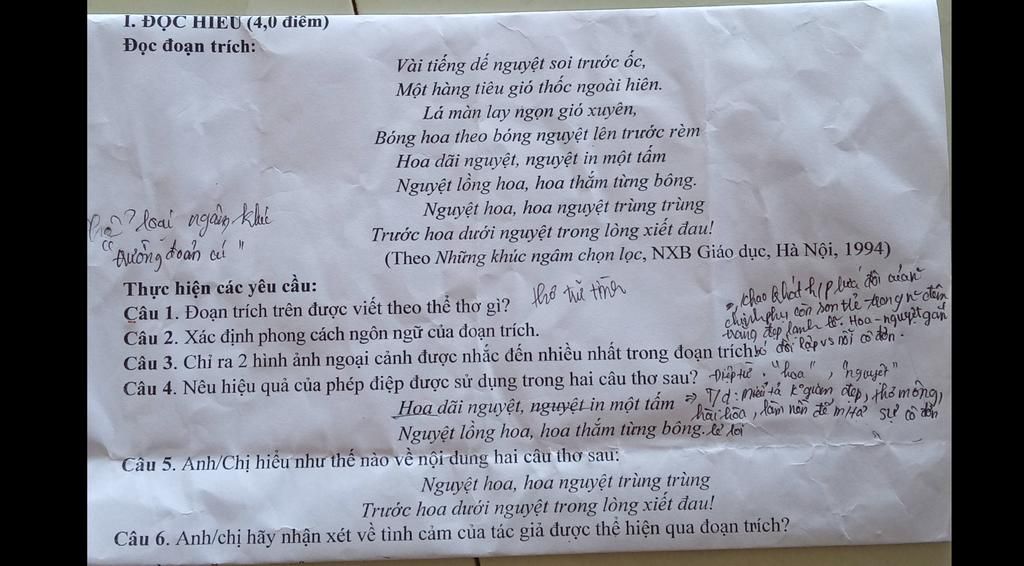 I. ĐỌC HIỂU (4,0 điểm)
Đọc đoạn trích:
Vài tiếng dế nguyệt soi trước ốc,
Một hàng tiêu gió thốc ngoài hiên.
Lá màn lay ngọn gió xuyên,
Bóng hoa theo bóng nguyệt lên trước rèm
Hoa dãi nguyệt, nguyệt in một tấm
Nguyệt lồng hoa, hoa thắm từng bông.
Nguyệt hoa, hoa nguyệt trùng trùng
Trước hoa dưới nguyệt trong lòng xiết đau!
(Theo Những khúc ngâm chọn lọc, NXB Giáo dục, Hà Nội, 1994)
loại ngâm khúc
"trường đoản cú"
Thực hiện các yêu cầu:
Câu 1. Đoạn trích trên được viết theo thể thơ gì?
thơ trữ tình
Câu 2. Xác định phong cách ngôn ngữ của đoạn trích.
Câu 3. Chỉ ra 2 hình ảnh ngoại cảnh được nhắc đến nhiều nhất trong đoạn trích
khao khát hp lứa đôi của
chinh phụ còn son trẻ trong đêm
trăng đẹp Hoa - nguyệt gắn
đối lập vs nỗi cô đơn.
Câu 4. Nêu hiệu quả của phép điệp được sử dụng trong hai câu thơ sau?
Điệp từ: "hoa", "nguyệt"
Hoa dãi nguyệt, nguyệt in một tấm
⇒ T/d: miêu tả k° gian đẹp, thơ mộng,
hài hòa, làm nền để sự cô đơn
Nguyệt lồng hoa, hoa thắm từng bông.
lẻ loi
Câu 5. Anh/Chị hiểu như thế nào về nội dung hai câu thơ sau:
Nguyệt hoa, hoa nguyệt trùng trùng
Trước hoa dưới nguyệt trong lòng xiết đau!
Câu 6. Anh/chị hãy nhận xét về tình cảm của tác giả được thể hiện qua đoạn trích?